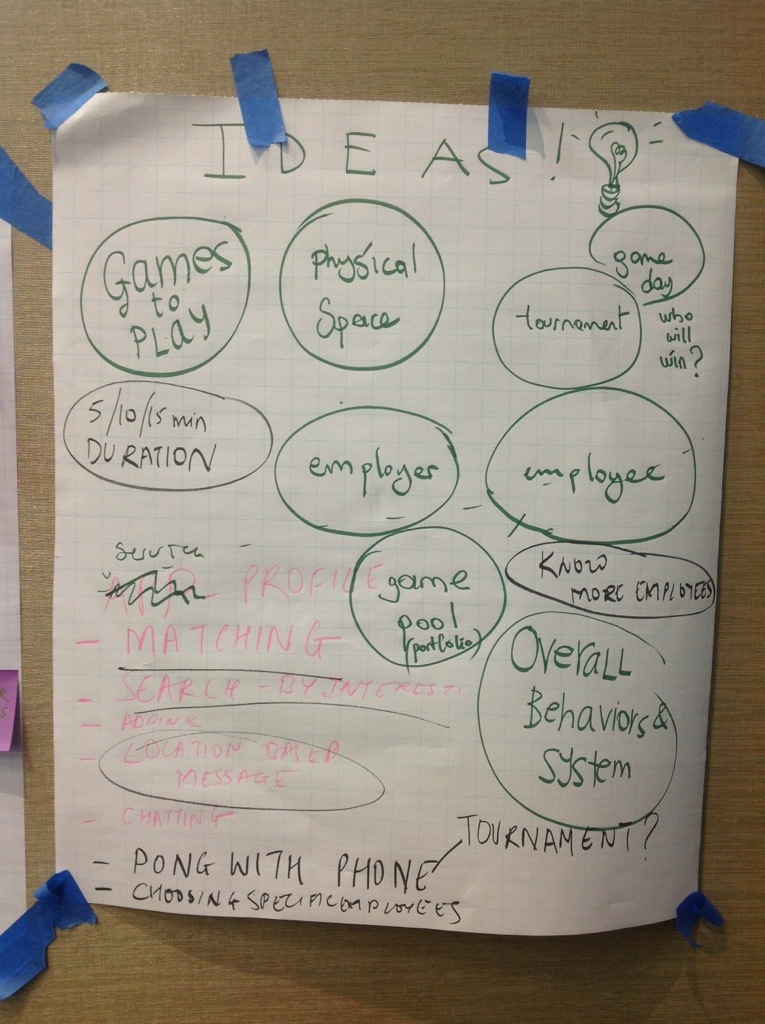 IDEAS!
game
day
Games
to
PLAY
physical
Space
tournament
who
will
win?
5/10/15 min
DURATION
employer
employee
service
APP PROFILE
game
pool
(portfolio)
KNOW
MORE EMPLOYEES
- MATCHING
- SEARCH - BY INTERESTS
- ADDING
- LOCATION BASED
MESSAGE
- CHATTING
OVERALL
Behaviors &
System
TOURNAMENT?
- PONG WITH PHONE
- CHOOSING SPECIFIC EMPLOYEES